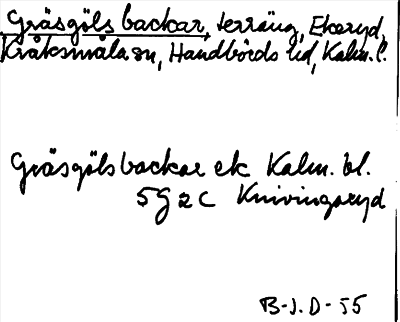 Gräsgöls backar, terräng, Ekeryd,
Kråksmåla sn, Handbörds hd, Kalm. l.
Gräsgölsbackar ek Kalm. bl.
5G2c Knivingaryd
B-J.D-55